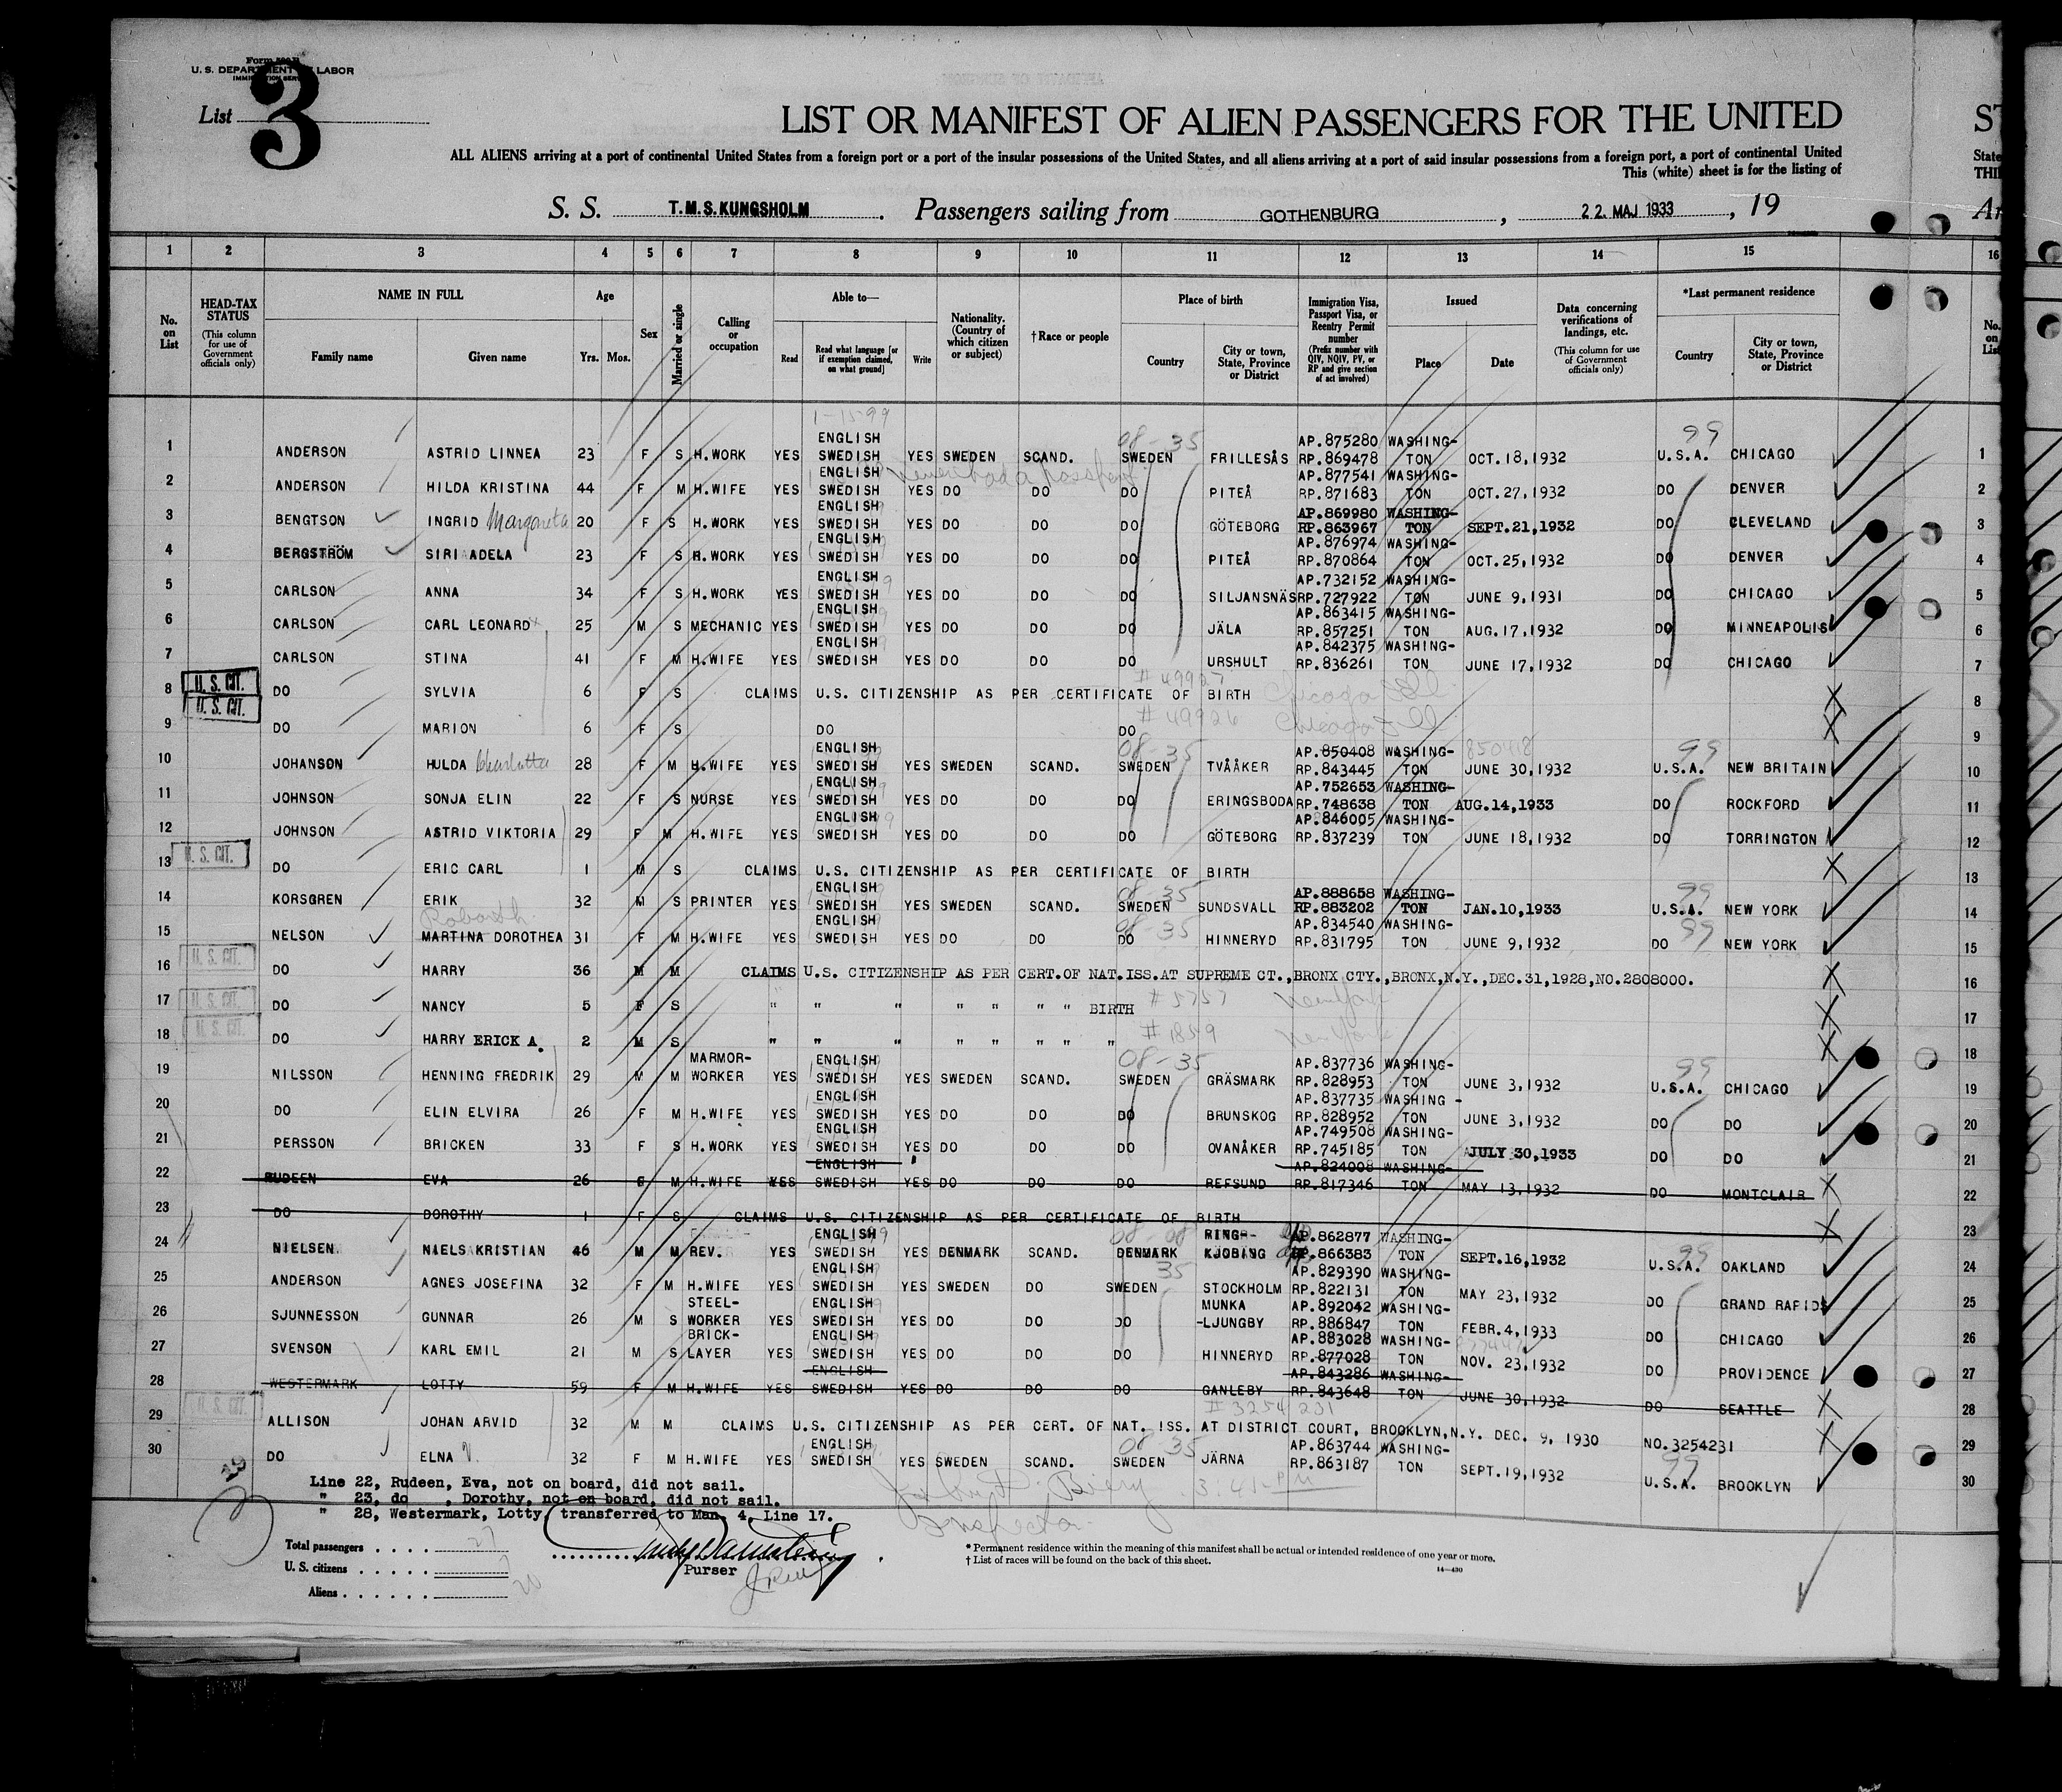 Form 500 B
U. S. DEPARTMENT OF LABOR
IMMIGRATION SERVICE
List 3
LIST OR MANIFEST OF ALIEN PASSENGERS FOR THE UNITED
ST
ALL ALIENS arriving at a port of continental United States from a foreign port or a port of the insular possessions of the United States, and all aliens arriving at a port of said insular possessions from a foreign port, a port of continental United
State
This (white) sheet is for the listing of
THI
S. S. T.M.S. KUNGSHOLM. Passengers sailing from GOTHENBURG, 22. MAJ 1933, 19
Ar
1 2 3 4 5 6 7 8 9 10 11 12 13 14 15 16
No. on List
HEAD-TAX STATUS (This column for use of Government officials only)
NAME IN FULL Family name Given name
Age Yrs. Mos.
Sex
Married or single
Calling or occupation
Able to— Read Read what language [or if exemption claimed, on what ground] Write
Nationality. (Country of which citizen or subject)
†Race or people
Place of birth Country City or town, State, Province or District
Immigration Visa, Passport Visa, or Reentry Permit number (Prefix number with QIV, NQIV, PV, or RP and give section of act involved)
Issued Place Date
Data concerning verifications of landings, etc. (This column for use of Government officials only)
*Last permanent residence Country City or town, State, Province or District
No. on List
1-15-99 08-35 99
1 ANDERSON ASTRID LINNEA 23 F S H.WORK YES ENGLISH SWEDISH YES SWEDEN SCAND. SWEDEN FRILLESÅS AP.875280 RP.869478 WASHING-TON OCT.18,1932 U.S.A. CHICAGO 1
2 ANDERSON HILDA KRISTINA 44 F M H.WIFE YES ENGLISH SWEDISH YES DO DO DO PITEÅ AP.877541 RP.871683 WASHING-TON OCT.27,1932 DO DENVER 2
3 BENGTSON INGRID Margareta 20 F S H.WORK YES ENGLISH SWEDISH YES DO DO DO GÖTEBORG AP.869980 RP.863967 WASHING-TON SEPT.21,1932 DO CLEVELAND 3
4 BERGSTRÖM SIRI ADELA 23 F S H.WORK YES ENGLISH SWEDISH YES DO DO DO PITEÅ AP.876974 RP.870864 WASHING-TON OCT.25,1932 DO DENVER 4
5 CARLSON ANNA 34 F S H.WORK YES ENGLISH SWEDISH YES DO DO DO SILJANSNÄS AP.732152 RP.727922 WASHING-TON JUNE 9,1931 DO CHICAGO 5
6 CARLSON CARL LEONARD 25 M S MECHANIC YES ENGLISH SWEDISH YES DO DO DO JÄLA AP.863415 RP.857251 WASHING-TON AUG.17,1932 DO MINNEAPOLIS 6
7 CARLSON STINA 41 F M H.WIFE YES ENGLISH SWEDISH YES DO DO DO URSHULT AP.842375 RP.836261 WASHING-TON JUNE 17,1932 DO CHICAGO 7
8 U. S. CIT. DO SYLVIA 6 F S CLAIMS U.S. CITIZENSHIP AS PER CERTIFICATE OF BIRTH # 49927 Chicago Ill. 8
9 U. S. CIT. DO MARION 6 F S DO DO # 49926 Chicago Ill 9
08-35 850418 99
10 JOHANSON HULDA Charlotta 28 F M H.WIFE YES ENGLISH SWEDISH YES SWEDEN SCAND. SWEDEN TVÅÅKER AP.850408 RP.843445 WASHING-TON JUNE 30,1932 U.S.A. NEW BRITAIN 10
11 JOHNSON SONJA ELIN 22 F S NURSE YES ENGLISH SWEDISH YES DO DO DO ERINGSBODA AP.752653 RP.748638 WASHING-TON AUG.14,1933 DO ROCKFORD 11
12 JOHNSON ASTRID VIKTORIA 29 F M H.WIFE YES ENGLISH SWEDISH YES DO DO DO GÖTEBORG AP.846005 RP.837239 WASHING-TON JUNE 18,1932 DO TORRINGTON 12
13 U. S. CIT. DO ERIC CARL 1 M S CLAIMS U.S. CITIZENSHIP AS PER CERTIFICATE OF BIRTH 13
08-35 99
14 KORSGREN ERIK 32 M S PRINTER YES ENGLISH SWEDISH YES SWEDEN SCAND. SWEDEN SUNDSVALL AP.888658 RP.883202 WASHING-TON JAN.10,1933 U.S.A. NEW YORK 14
08-35 99
15 NELSON MARTINA DOROTHEA 31 F M H.WIFE YES ENGLISH SWEDISH YES DO DO DO HINNERYD AP.834540 RP.831795 WASHING-TON JUNE 9,1932 DO NEW YORK 15
16 U. S. CIT. DO HARRY 36 M M CLAIMS U.S. CITIZENSHIP AS PER CERT.OF NAT.ISS.AT SUPREME CT.,BRONX CTY.,BRONX,N.Y.,DEC.31,1928,NO.2808000. 16
17 U. S. CIT. DO NANCY 5 F S " " " " " " " BIRTH # 5757 New York 17
18 U. S. CIT. DO HARRY ERICK A. 2 M S " " " " " " " " # 1859 New York 18
08-35 99
19 NILSSON HENNING FREDRIK 29 M M MARMOR-WORKER YES ENGLISH SWEDISH YES SWEDEN SCAND. SWEDEN GRÄSMARK AP.837736 RP.828953 WASHING-TON JUNE 3,1932 U.S.A. CHICAGO 19
20 DO ELIN ELVIRA 26 F M H.WIFE YES ENGLISH SWEDISH YES DO DO DO BRUNSKOG AP.837735 RP.828952 WASHING-TON JUNE 3,1932 DO DO 20
21 PERSSON BRICKEN 33 F S H.WORK YES ENGLISH SWEDISH YES DO DO DO OVANÅKER AP.749508 RP.745185 WASHING-TON JULY 30,1933 DO DO 21
22 RUDEEN EVA 26 F M H.WIFE YES ENGLISH SWEDISH YES DO DO DO REFSUND AP.824008 RP.817346 WASHING-TON MAY 13,1932 DO MONTCLAIR 22
23 DO DOROTHY 1 F S CLAIMS U.S. CITIZENSHIP AS PER CERTIFICATE OF BIRTH 23
24 NIELSEN NIELS KRISTIAN 46 M M REV. YES ENGLISH SWEDISH YES DENMARK SCAND. DENMARK RING-KJOBING AP.862877 RP.866383 WASHING-TON SEPT.16,1932 U.S.A. OAKLAND 24
35
25 ANDERSON AGNES JOSEFINA 32 F M H.WIFE YES ENGLISH SWEDISH YES SWEDEN DO SWEDEN STOCKHOLM AP.829390 RP.822131 WASHING-TON MAY 23,1932 DO GRAND RAPIDS 25
26 SJUNNESSON GUNNAR 26 M S STEEL-WORKER YES ENGLISH SWEDISH YES DO DO DO MUNKA-LJUNGBY AP.892042 RP.886847 WASHING-TON FEBR.4,1933 DO CHICAGO 26
27 SVENSON KARL EMIL 21 M S BRICK-LAYER YES ENGLISH SWEDISH YES DO DO DO HINNERYD AP.883028 RP.877028 WASHING-TON NOV. 23,1932 DO PROVIDENCE 27
28 WESTERMARK LOTTY 59 F M H.WIFE YES ENGLISH SWEDISH YES DO DO DO GANLEBY AP.843286 RP.843648 WASHING-TON JUNE 30,1932 DO SEATTLE 28
29 U. S. CIT. ALLISON JOHAN ARVID 32 M M CLAIMS U.S. CITIZENSHIP AS PER CERT. OF NAT. ISS. AT DISTRICT COURT, BROOKLYN,N.Y. DEC. 9, 1930 NO.3254231 # 3254231 29
08-35 99
30 DO ELNA V. 32 F M H.WIFE YES ENGLISH SWEDISH YES SWEDEN SCAND. SWEDEN JÄRNA AP.863744 RP.863187 WASHING-TON SEPT.19,1932 U.S.A. BROOKLYN 30
Line 22, Rudeen, Eva, not on board, did not sail.
" 23, do , Dorothy, not on board, did not sail.
" 28, Westermark, Lotty, transferred to Man. 4, Line 17.
3:41 PM
Inspector
Total passengers 27
U. S. citizens 7
Aliens 20
Purser
* Permanent residence within the meaning of this manifest shall be actual or intended residence of one year or more.
† List of races will be found on the back of this sheet.
14—430